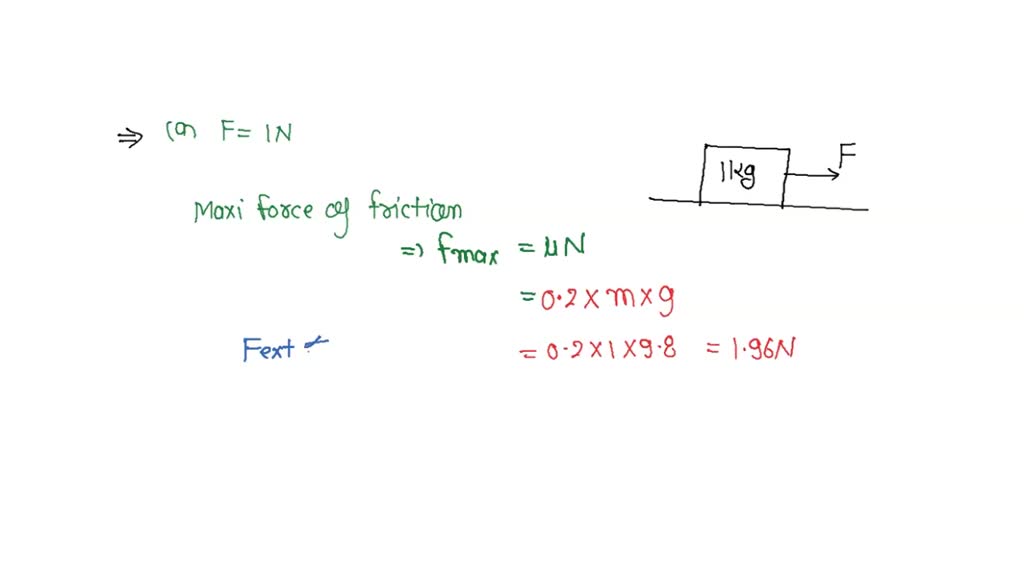 ⇒ (a) F = 1N
1kg
F
Maxi force of friction
⇒ fmax = μN
= 0.2 × m × g
= 0.2 × 1 × 9.8 = 1.96N
Fext